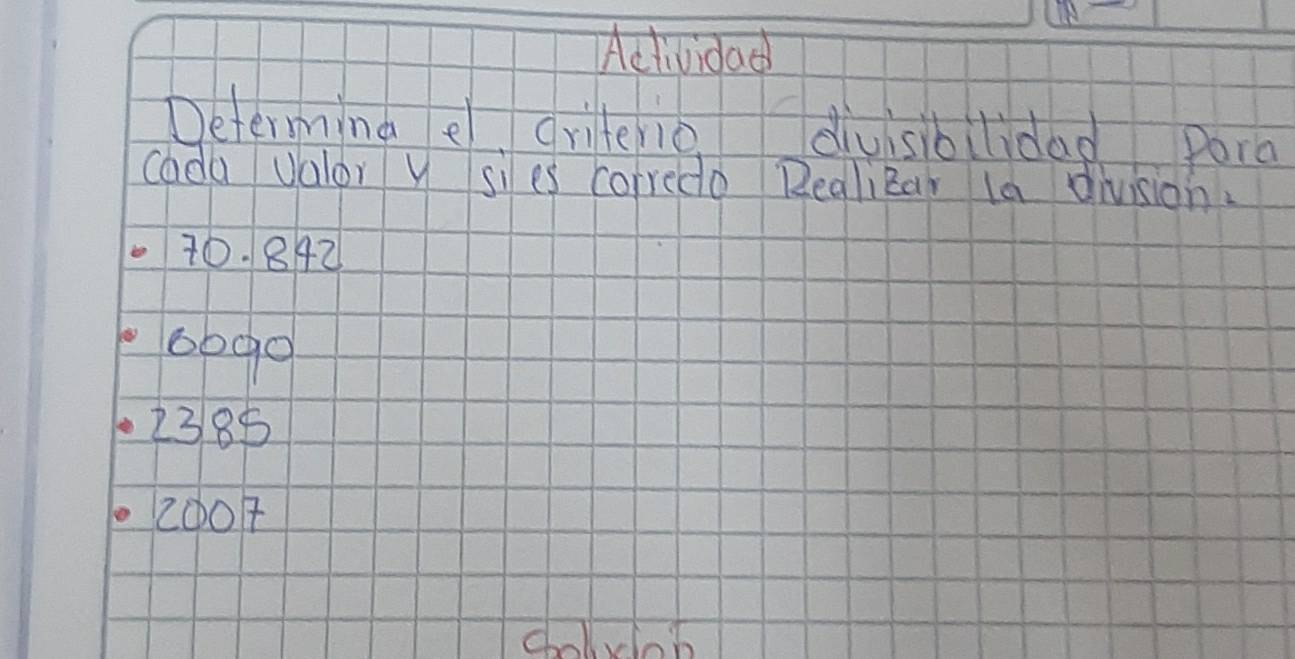 Actividad
Determina el criterio divisibilidad para
cada valor y si es correcto Realizar la división.
• 70.842
• 6690
• 2385
• 2007
Solución